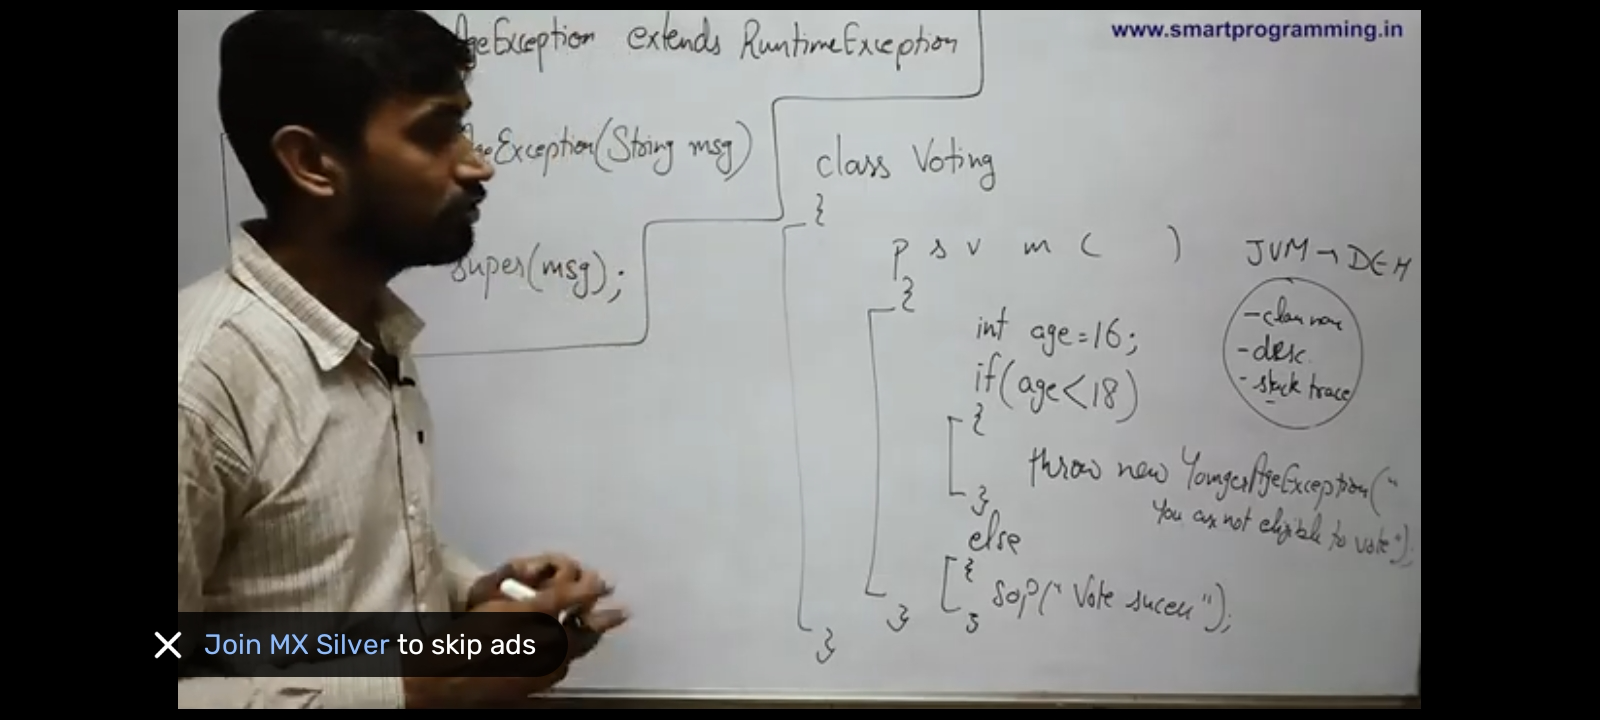 www.smartprogramming.in
AgeException extends RuntimeException
AgeException(String msg)
super(msg);
class Voting
{
p s v m ( )
{
int age=16;
if(age<18)
{
throw new YoungerAgeException("
You are not eligible to vote");
}
else
{
sop("Vote success");
}
}
}
JVM → DEH
- class name
- desc.
- stack trace
Join MX Silver to skip ads